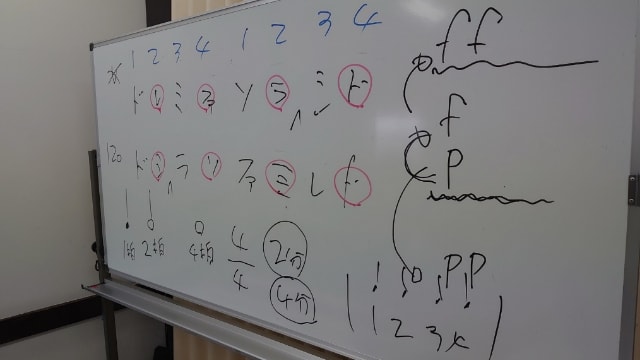 1 2 3 4 1 2 3 4
ド レ ミ ファ ソ ラ ミ ド
120
ド ラ ソ ファ ミ レ ド
1拍 2拍 4拍
4/4
2分
4分
ff
f
P
PP
1 2 3 4